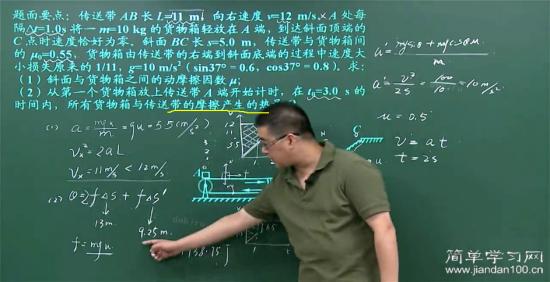 题面要点：传送带AB长L=11 m，向右速度v=12 m/s，A处每
隔Δt=1.0s将一m=10 kg的货物箱轻放在A端，到达斜面顶端的
C点时速度恰好为零。斜面BC长s=5.0 m，传送带与货物箱间
的μ₀=0.55，货物箱由传送带的右端到斜面底端的过程中速度大
小损失原来的1/11，g=10 m/s²（sin37°=0.6，cos37°=0.8）。求：
（1）斜面与货物箱之间的动摩擦因数μ；
（2）从第一个货物箱放上传送带A端开始计时，在t₀=3.0 s的
时间内，所有货物箱与传送带的摩擦产生的热
(1) a=mgu/m=gu=5.5(m/s²)
Vx²=2aL
Vx=11m/s<12m/s
(2) Q=2fΔS+fΔS'
13m
9.25m
f=mgu
a'=
a'=v²/2s=100/10=10m/s²
u=0.5
v=at
t=2s
A
C
简单学习网
www.jiandan100.cn